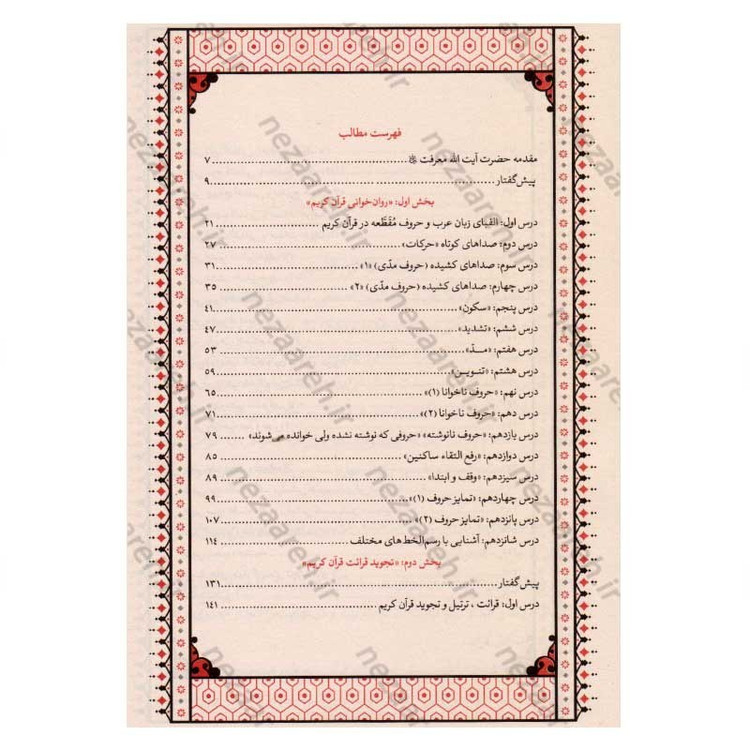 فهرست مطالب
مقدمه حضرت آیت الله معرفت ........ ۷
پیش‌گفتار ........ ۹
بخش اول: «روان‌خوانی قرآن کریم»
درس اول: الفبای زبان عرب و حروف مُقَطَّعه در قرآن کریم ........ ۲۱
درس دوم: صداهای کوتاه «حرکات» ........ ۲۷
درس سوم: صداهای کشیده (حروف مدّی) «۱» ........ ۳۱
درس چهارم: صداهای کشیده (حروف مدّی) «۲» ........ ۳۵
درس پنجم: «سکون» ........ ۴۱
درس ششم: «تشدید» ........ ۴۷
درس هفتم: «مـدّ» ........ ۵۳
درس هشتم: «تنویـن» ........ ۵۹
درس نهم: «حروف ناخوانا (۱)» ........ ۶۵
درس دهم: «حروف ناخوانا (۲)» ........ ۷۱
درس یازدهم: «حروف نانوشته» «حروفی که نوشته نشده ولی خوانده می‌شوند» ........ ۷۹
درس دوازدهم: «رفع التقاء ساکنین» ........ ۸۵
درس سیزدهم: «وقف و ابتدا» ........ ۸۹
درس چهاردهم: «تمایز حروف (۱)» ........ ۹۹
درس پانزدهم: «تمایز حروف (۲)» ........ ۱۰۷
درس شانزدهم: آشنایی با رسم‌الخط‌های مختلف ........ ۱۱۴
بخش دوم: «تجوید قرائت قرآن کریم»
پیش‌گفتار ........ ۱۳۱
درس اول: قرائت ، ترتیل و تجوید قرآن کریم ........ ۱۴۱
nezaareh.ir